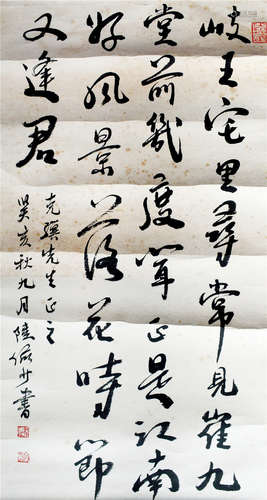 岐王宅里尋常見崔九
堂前幾度聞正是江南
好風景落花時節
又逢君
克驥先生正之
癸亥秋九月陸儼少書